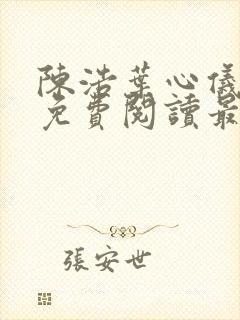 陳浩葉心儀
免費閱讀最
張安世